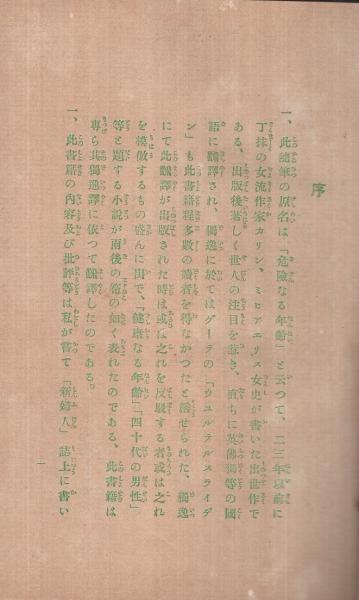 序
一、此隨筆の原名は「危險なる年齡」と云つて、二三年以前に
丁抹の女流作家カリン、ミヒアエリス女史が書いた出世作で
ある、出版後著しく世人の注目を惹き、直ちに英佛獨等の國
語に飜譯され、獨逸に於てはゲーテの「ウエルテルスライデ
ン」も此書籍程多數の讀者を得なかつたと話せられた、獨逸
にて此飜譯が出版された時は或は之れを反駁する者或は之れ
を模倣するもの盛んに出で、「健康なる年齡」「四十代の男性」
等と題する小說が雨後の筍の如く表れたのである、此書籍は
專ら其獨逸譯に依つて飜譯したのである。
一、此書籍の内容及び批評等は私が嘗て「新婦人」誌上に書い
一